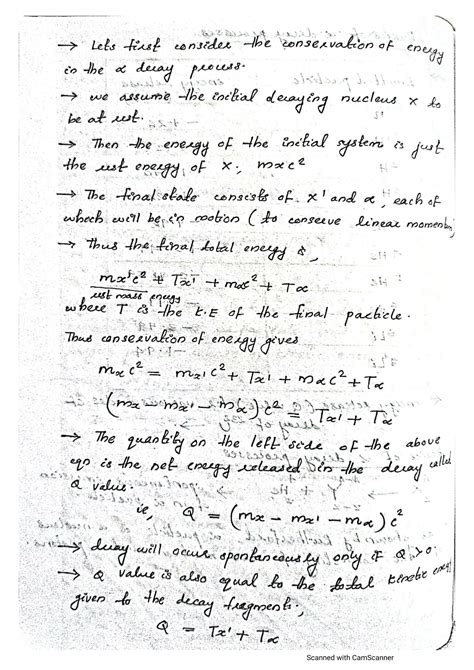 → Lets first consider the conservation of energy
in the α decay process.
→ we assume the initial decaying nucleus X to
be at rest.
→ Then the energy of the initial system is just
the rest energy of X, mxc²
→ The final state consists of X' and α, each of
which will be in motion (to conserve linear momentum)
→ Thus the final total energy is,
mx'c² + Tx' + mαc² + Tα
rest mass energy
where T is the K.E of the final particle.
Thus conservation of energy gives
mxc² = mx'c² + Tx' + mαc² + Tα
(mx - mx' - mα)c² = Tx' + Tα
→ The quantity on the left side of the above
eqn is the net energy released in the decay called
Q value.
ie, Q = (mx - mx' - mα)c²
→ decay will occur spontaneously only if Q>0.
→ Q value is also equal to the total kinetic energy
given to the decay fragments,
Q = Tx' + Tα
Scanned with CamScanner